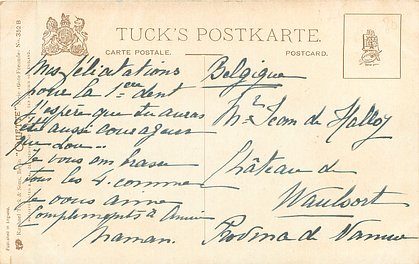 TUCK'S POSTKARTE.
CARTE POSTALE.
POSTCARD.
Mes félicitations
pour la 1ère dent
J'espère que tu auras
été aussi courageux
que
Je vous embrasse
tous les 4. comme
je vous aime
Compliments à
Maman.
Belgique
Jean de Halloy
Château de
Waulsort
Province de Namur